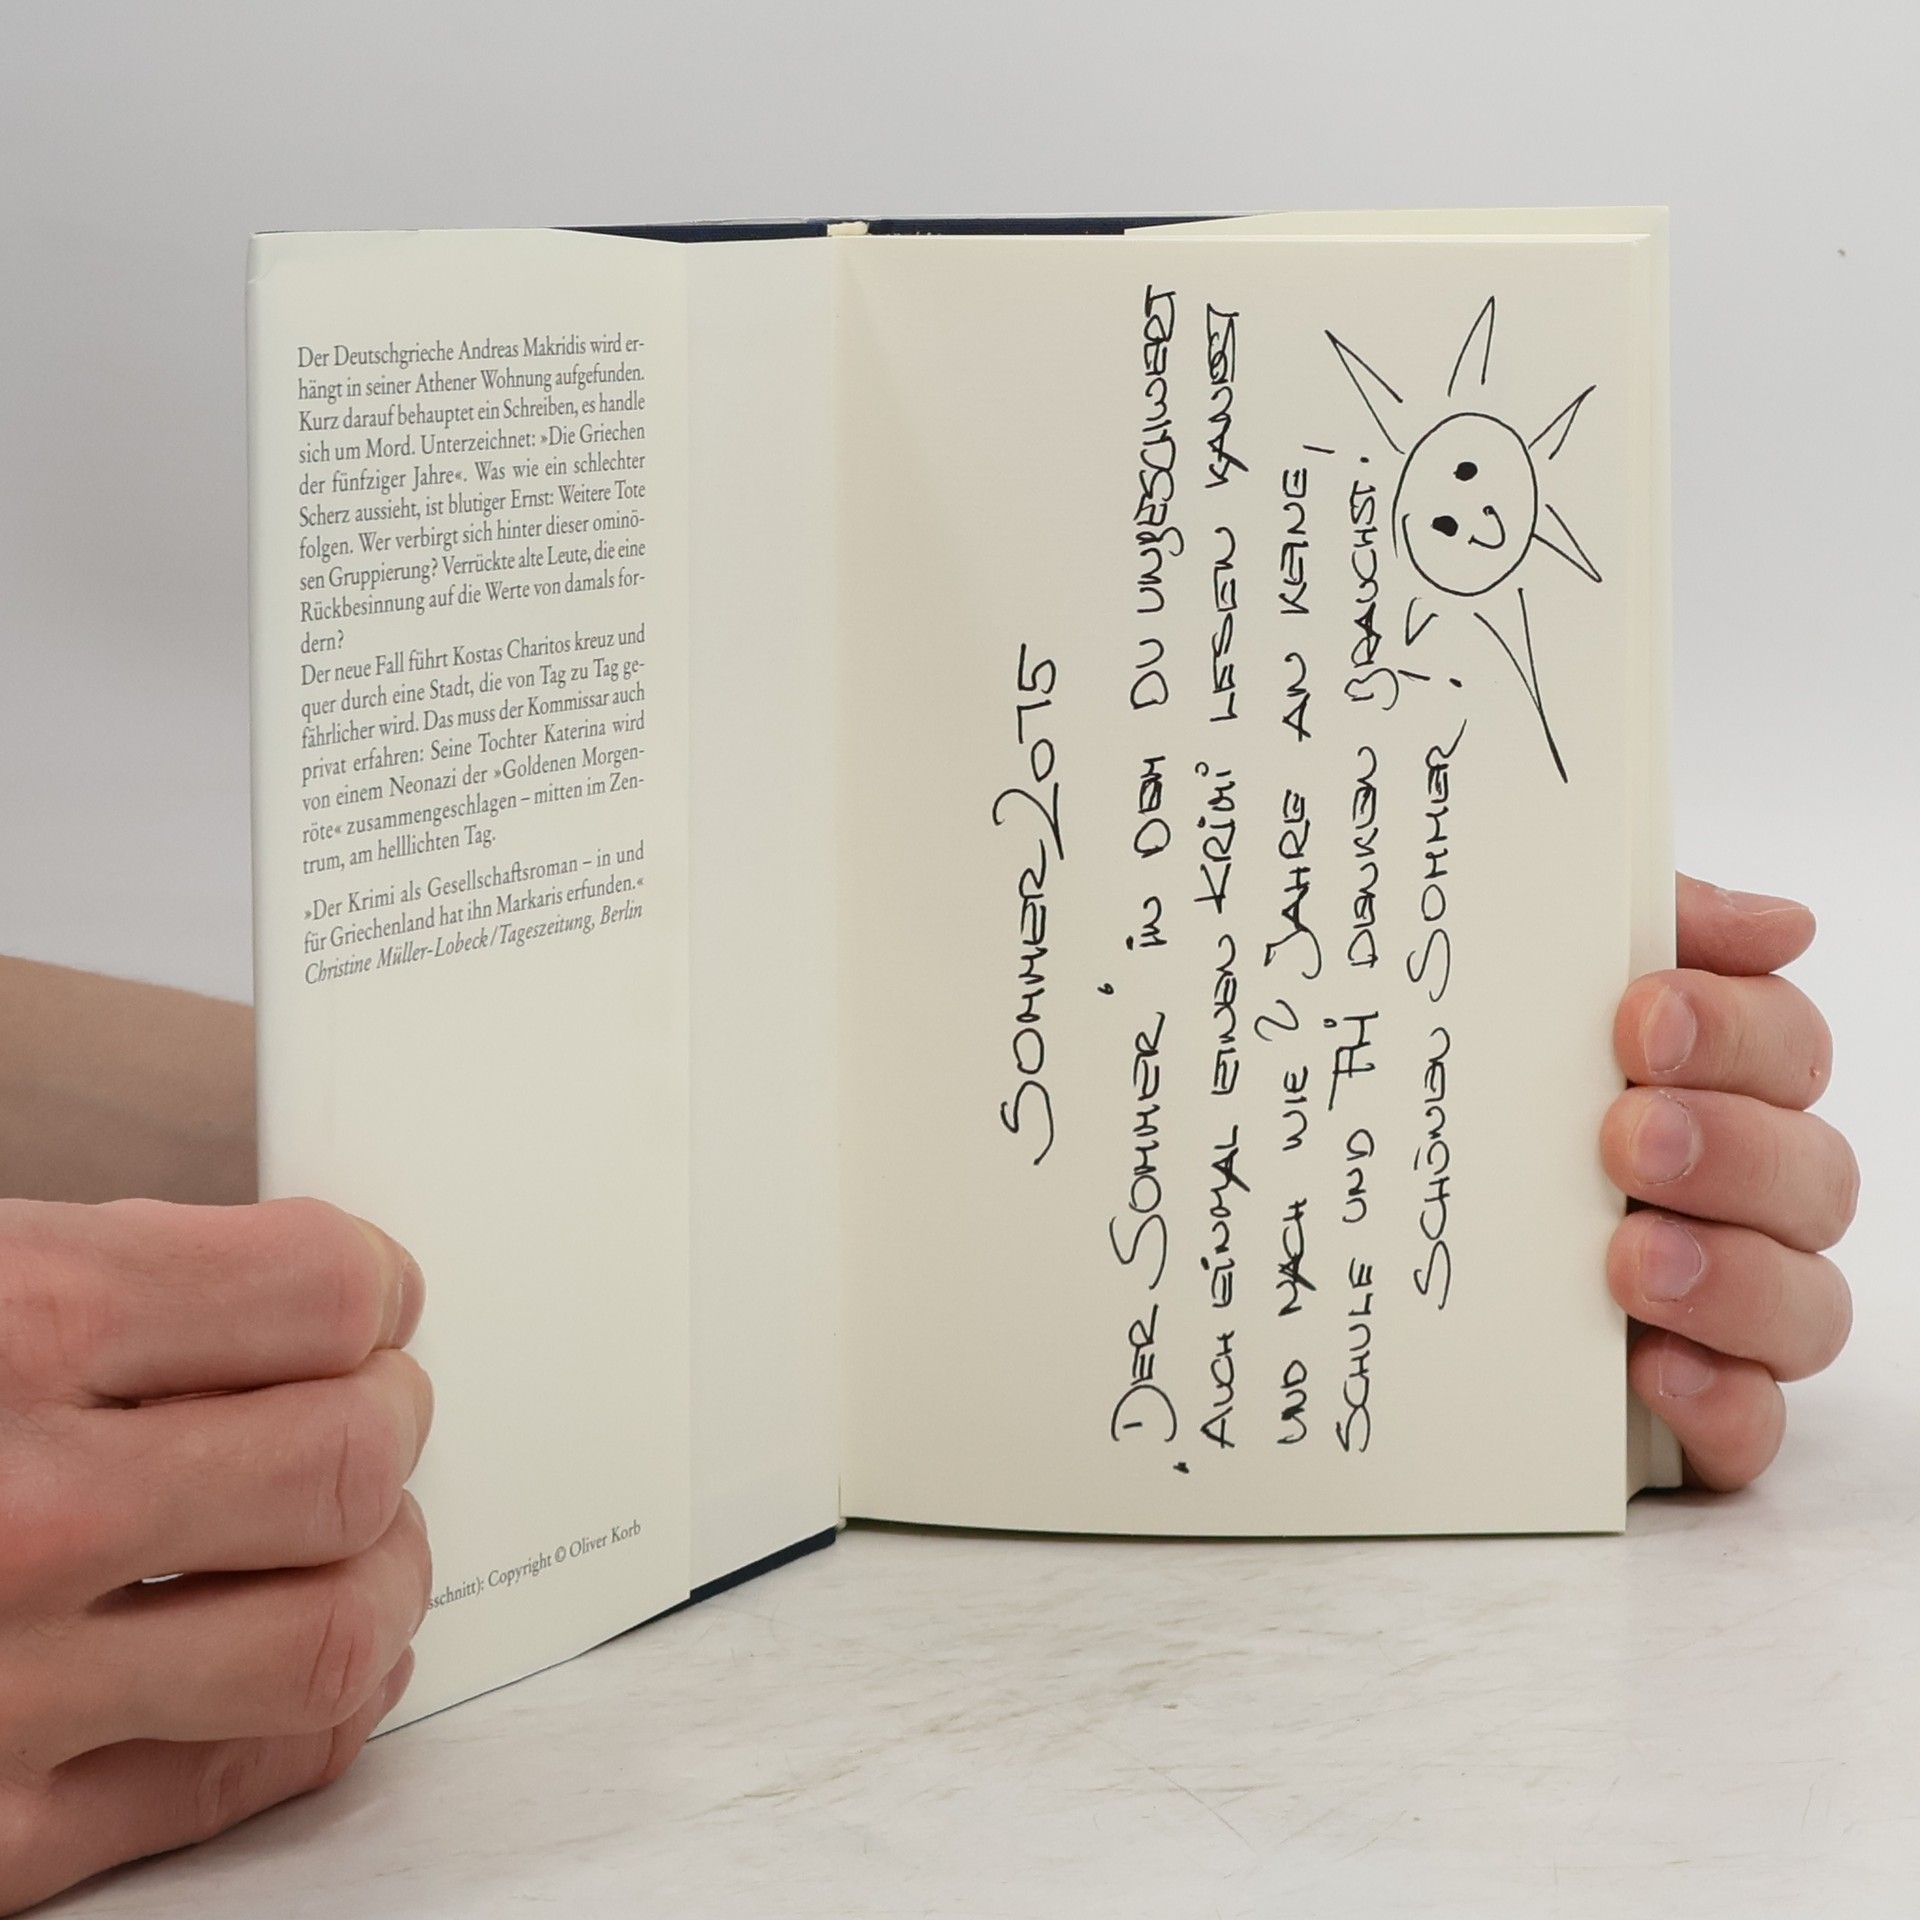 Der Deutschgrieche Andreas Makridis wird er-
hängt in seiner Athener Wohnung aufgefunden.
Kurz darauf behauptet ein Schreiben, es handle
sich um Mord. Unterzeichnet: »Die Griechen
der fünfziger Jahre«. Was wie ein schlechter
Scherz aussieht, ist blutiger Ernst: Weitere Tote
folgen. Wer verbirgt sich hinter dieser ominö-
sen Gruppierung? Verrückte alte Leute, die eine
Rückbesinnung auf die Werte von damals for-
dern?
Der neue Fall führt Kostas Charitos kreuz und
quer durch eine Stadt, die von Tag zu Tag ge-
fährlicher wird. Das muss der Kommissar auch
privat erfahren: Seine Tochter Katerina wird
von einem Neonazi der »Goldenen Morgen-
röte« zusammengeschlagen – mitten im Zen-
trum, am helllichten Tag.
»Der Krimi als Gesellschaftsroman – in und
für Griechenland hat ihn Markaris erfunden.«
Christine Müller-Lobeck/Tageszeitung, Berlin
sschnitt): Copyright © Oliver Korb
SOMMER 2015
"DER SOMMER" IN DEM DU UNBESCHWERT
AUCH EINMAL EINEN KRIMI LESEN KANNST
UND NACH WIE 2 JAHRE AN KEINE
SCHULE UND DENKEN BRAUCHST.
SCHÖNEN SOMMER!